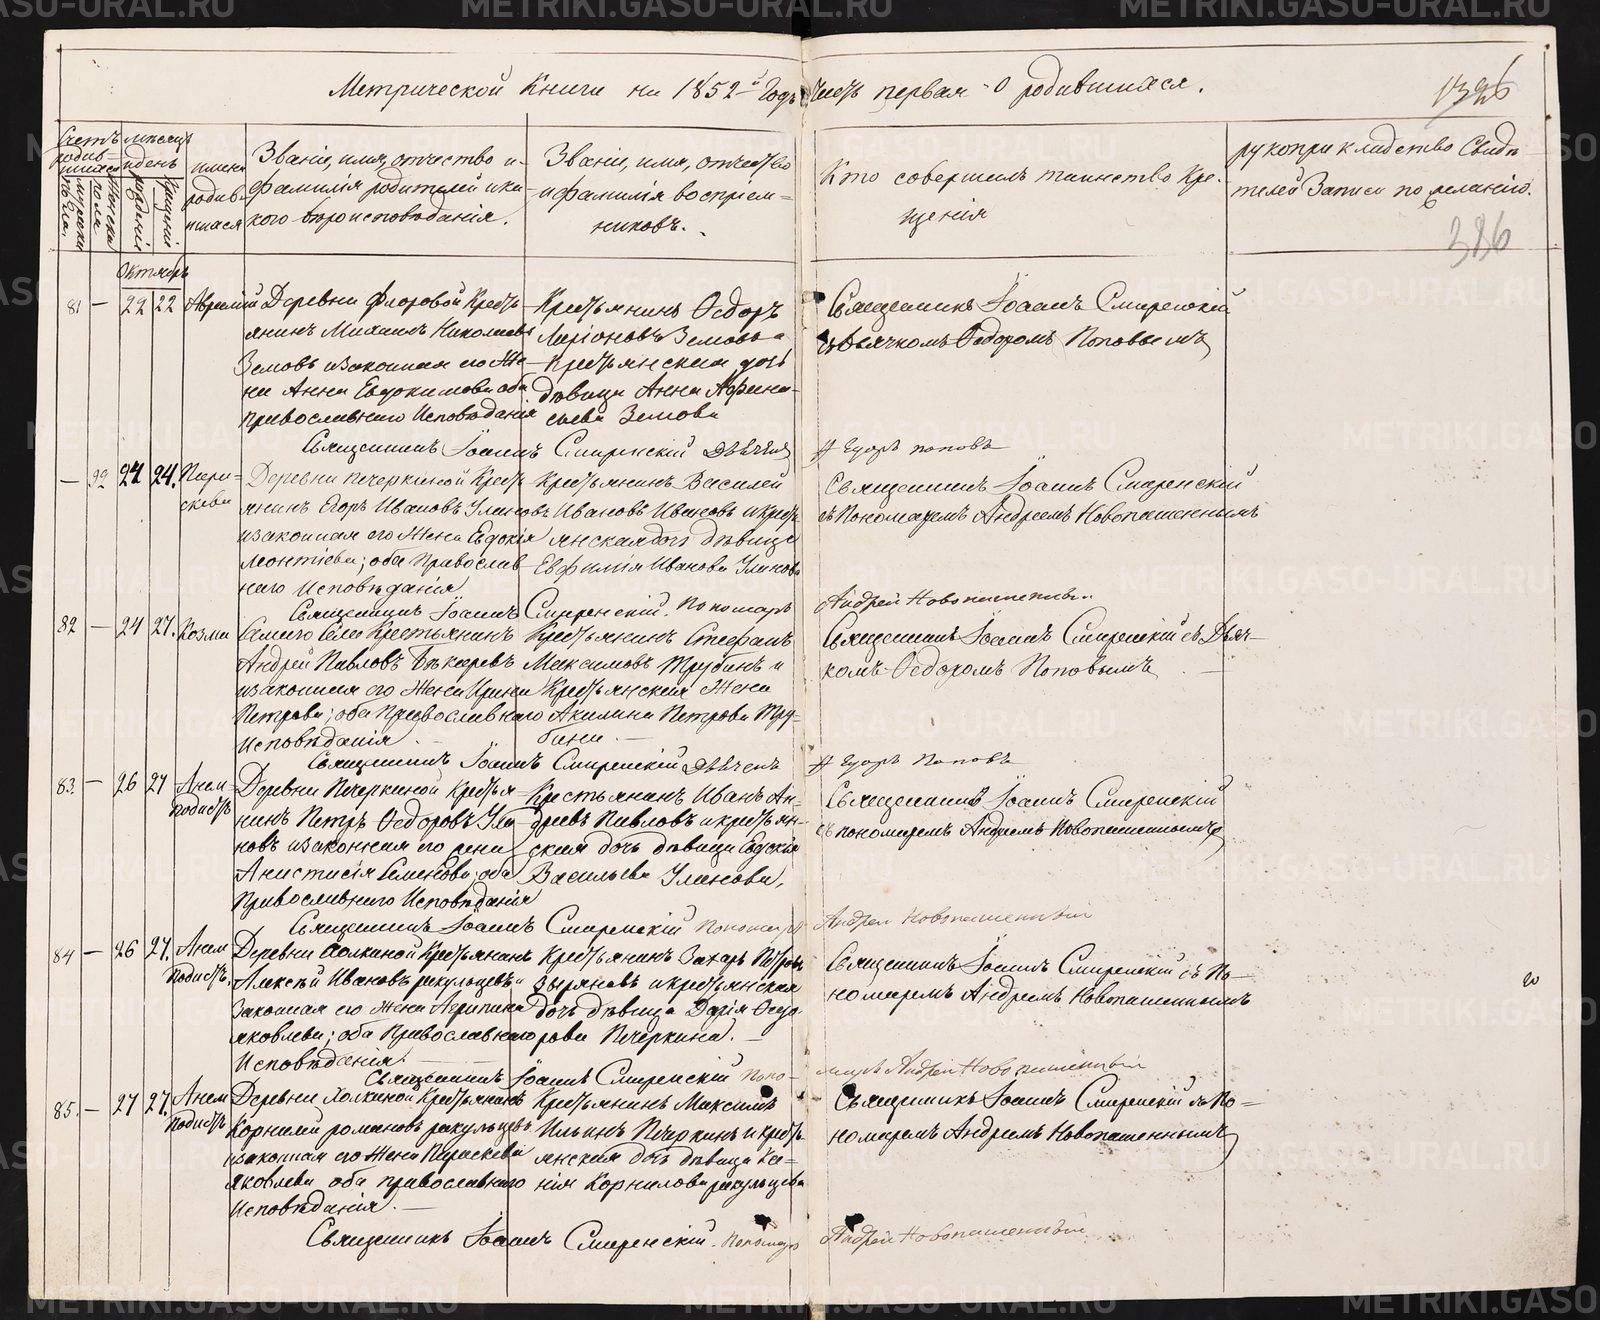 METRIKI.GASU-URAL.RU
Метрической Книги на 1852й Годъ Часть первая О родившихся.
1396
386
Счетъ родившихся
мужеска пола.
женска пола
Мѣсяцъ и день
рожденія
крещенія
Имена родившихся
Званіе, имя, отчество и
фамилія родителей и ка
кого вероисповѣданія.
Званіе, имя, отчество
и фамилія воспріем=
никовъ.
Кто совершалъ таинство Кре-
щенія
рукоприкладство Свидѣ
телей Записи по желанію.
Октябрь
81 — 22 22
Деревни Флоровой Кресть
янинъ Михаилъ Николаевъ
Земовъ и законная его Же
на Анна Евдокимова оба
Православнаго Исповѣданія
Крестьянинъ Ѳедоръ
Ларіоновъ Земовъ и
Крестьянская дочь
дѣвица Анна Афана-
сьева Земова
Священникъ Іоаннъ Смиренскій
съ Дьячкомъ Ѳедоромъ Поповымъ
Священникъ Іоаннъ Смиренскій Дьячекъ
Егоръ Поповъ
— 92 24 24. Пара=
скева
Деревни Печеркиной Кресть
янинъ Егоръ Ивановъ Улановъ
и законная его Жена Евдокія
Леонтіева; оба Православ
наго Исповѣданія
Крестьянинъ Василей
Ивановъ Ивановъ и кресть
янская дочь дѣвица
Евфимія Иванова Уланова
Священникъ Іоаннъ Смиренскій
съ Пономаремъ Андреемъ Новопашеннымъ
Священникъ Іоаннъ Смиренскій. Пономарь
Андрей Новопашенный
82 — 24 27. Козма
Самаго Села Крестьянинъ
Андрей Павловъ
и законная его Жена Ирина
Петрова; оба Православнаго
Исповѣданія
Крестьянинъ Стефанъ
Максимовъ Трубинъ и
Крестьянская Жена
Акилина Петрова Тру-
бина. —
Священникъ Іоаннъ Смиренскій съ Дьяч—
комъ Ѳедоромъ Поповымъ
Священникъ Іоаннъ Смиренскій Дьячекъ
Егоръ Поповъ
83. — 26 27 Анем
подистъ
Деревни Печеркиной Крестья-
нинъ Петръ Ѳедоровъ Ула
новъ и законная его жена
Анастасія Семенова, оба
Православнаго Исповѣданія
Крестьянинъ Иванъ Ан-
дреевъ Павловъ и крестьян-
ская дочь дѣвица Евдокія
Васильева Уланова,
Священникъ Іоаннъ Смиренскій
съ пономаремъ Андреемъ Новопашеннымъ
Священникъ Іоаннъ Смиренскій Пономарь
Андрей Новопашенный
84 — 26 27. Анем
подистъ.
Деревни Холкиной Крестьянинъ
Алексѣй Ивановъ ракульцевъ и
Законная его Жена Агрипина
Яковлева; оба Православнаго
Исповѣданія.
Крестьянинъ Захаръ Петровъ
Зыряновъ и крестьянская
дочь дѣвица Дарія Ѳедо
рова Печеркина. —
Священникъ Іоаннъ Смиренскій съ По—
номаремъ Андреемъ Новопашеннымъ
Священникъ Іоаннъ Смиренскій Поно-
марь Андрей Новопашенный
85. — 27 27. Анем
подистъ
Деревни Холкиной Крестьянинъ
Корнилій романовъ ракульцевъ
и законная его Жена Параскева
Яковлева оба православнаго
Исповѣданія. —
Крестьянинъ Максимъ
Ильинъ Печеркинъ и кресть
янская дочь дѣвица Ксе=
нія Корнилова ракульцева
Священникъ Іоаннъ Смиренскій съ По=
номаремъ Андреемъ Новопашеннымъ
Священникъ Іоаннъ Смиренскій. Пономарь
Андрей Новопашенный